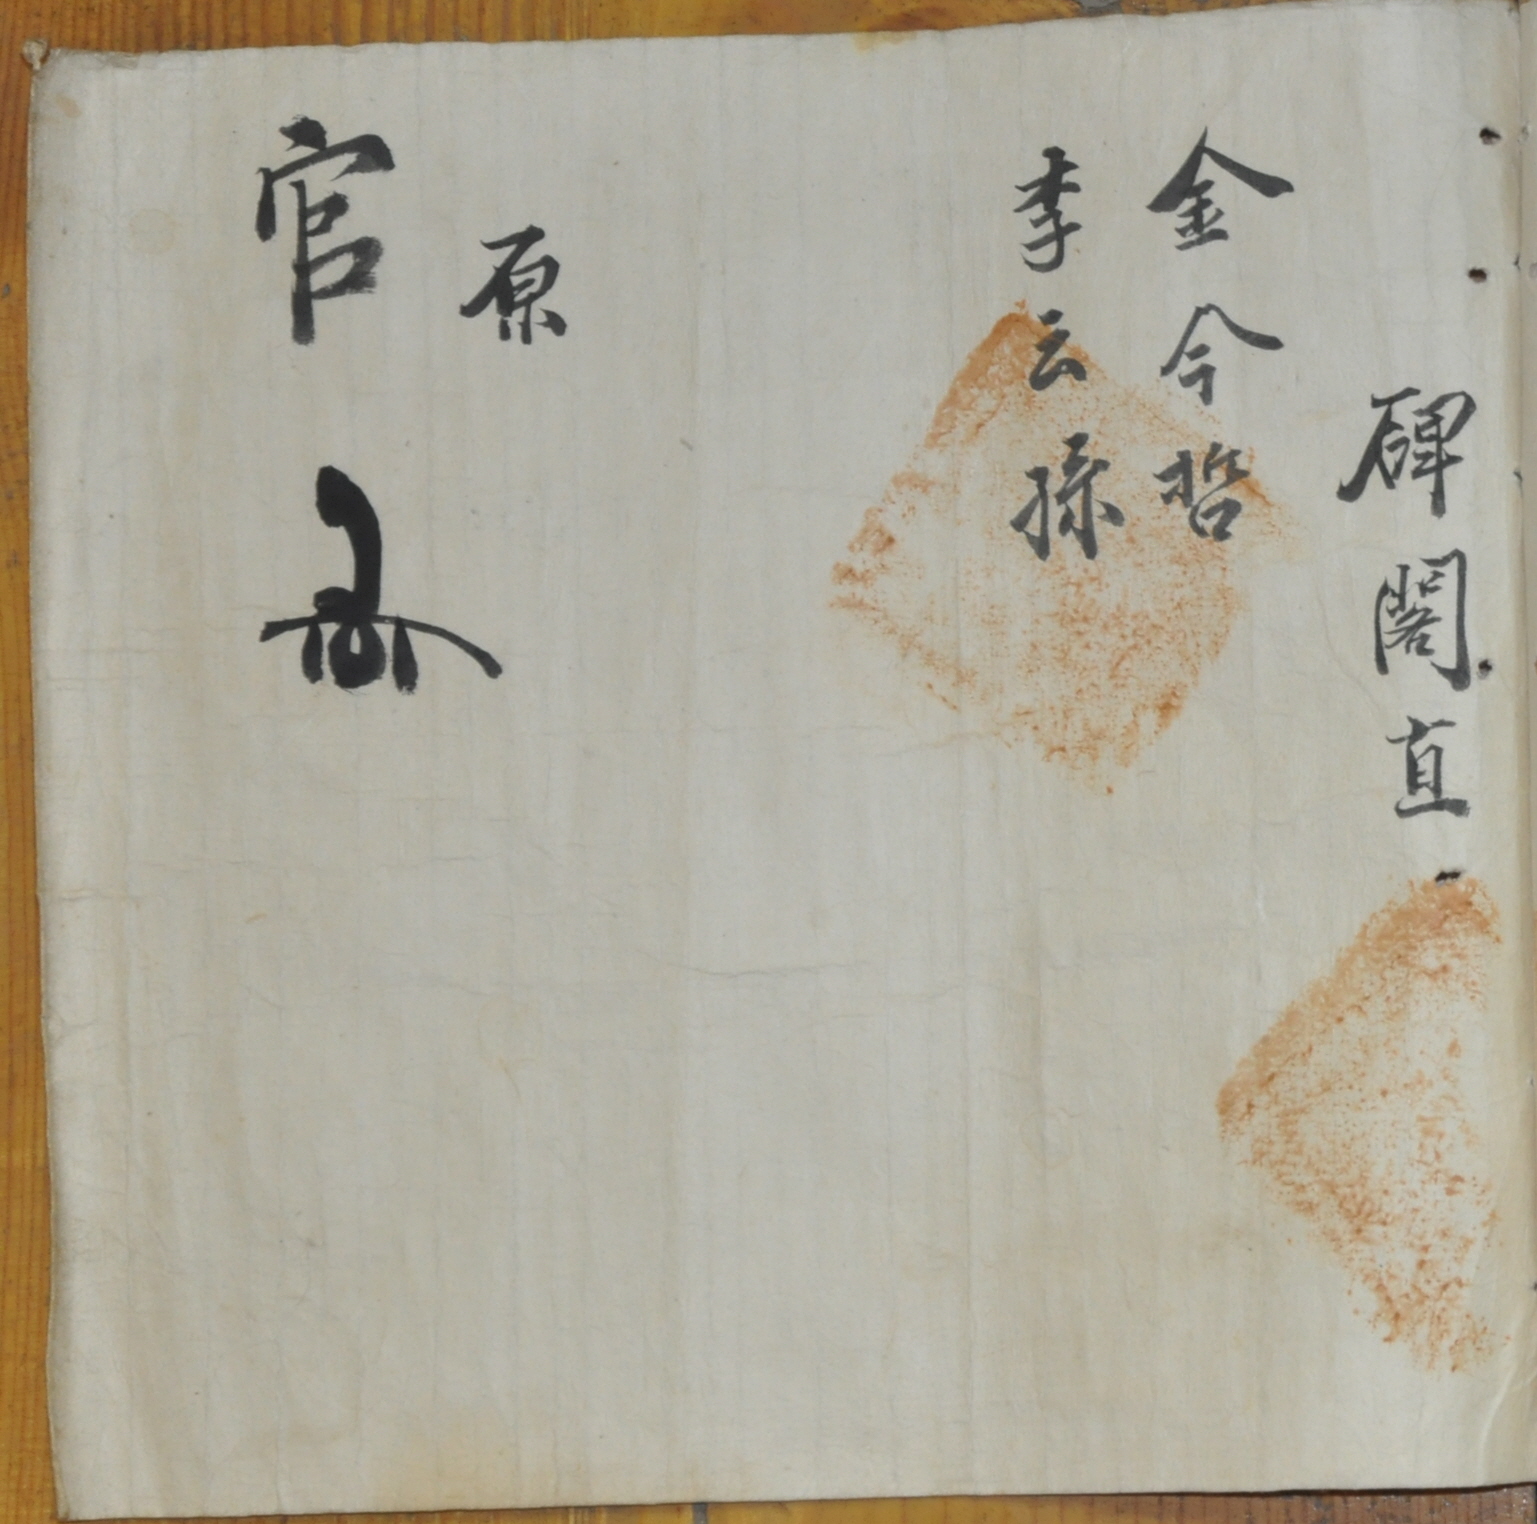 碑閣直
金今哲
李云孫
原
官